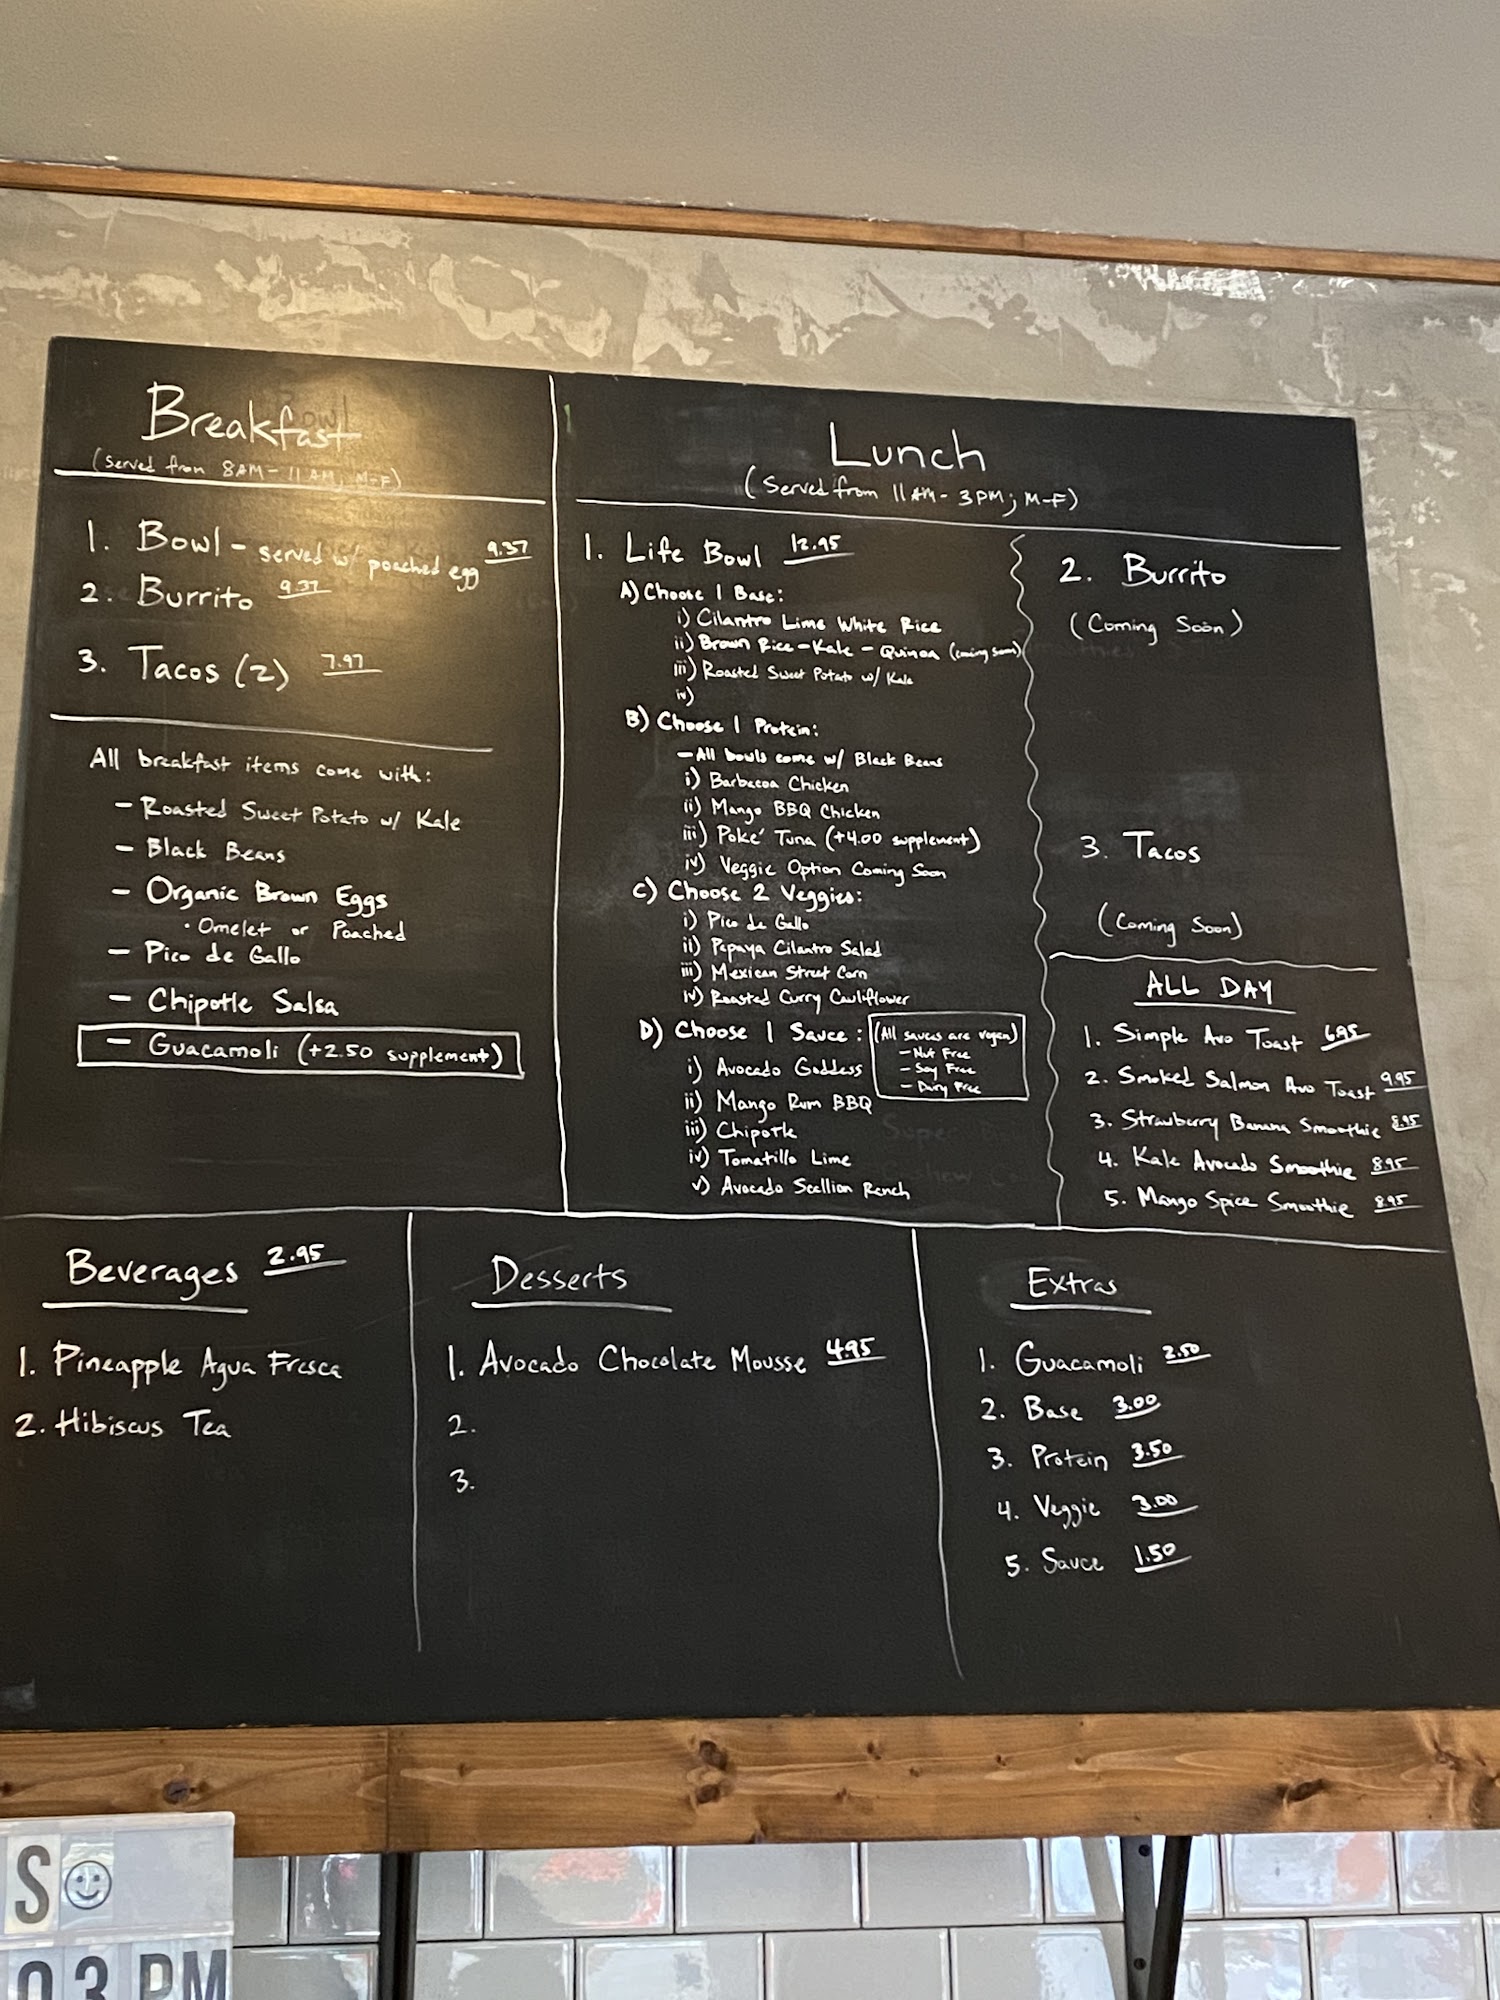 Breakfast
(Served from 8AM - 11AM; M-F)
1. Bowl - served w/ poached egg 9.37
2. Burrito 9.37
3. Tacos (2) 7.97
All breakfast items come with:
- Roasted Sweet Potato w/ Kale
- Black Beans
- Organic Brown Eggs
• Omelet or Poached
- Pico de Gallo
- Chipotle Salsa
- Guacamoli (+2.50 supplement)
Lunch
(Served from 11AM - 3PM; M-F)
1. Life Bowl 12.95
A) Choose 1 Base:
i) Cilantro Lime White Rice
ii) Brown Rice - Kale - Quinoa (coming soon)
iii) Roasted Sweet Potato w/ Kale
iv)
B) Choose 1 Protein:
- All bowls come w/ Black Beans
i) Barbacoa Chicken
ii) Mango BBQ Chicken
iii) Poke' Tuna (+4.00 supplement)
iv) Veggie Option Coming Soon
C) Choose 2 Veggies:
i) Pico de Gallo
ii) Papaya Cilantro Salad
iii) Mexican Street Corn
iv) Roasted Curry Cauliflower
D) Choose 1 Sauce:
(All sauces are vegan)
- Nut Free
- Soy Free
- Dairy Free
i) Avocado Goddess
ii) Mango Rum BBQ
iii) Chipotle
iv) Tomatillo Lime
v) Avocado Scallion Ranch
2. Burrito
(Coming Soon)
3. Tacos
(Coming Soon)
ALL DAY
1. Simple Avo Toast 6.95
2. Smoked Salmon Avo Toast 9.95
3. Strawberry Banana Smoothie 8.95
4. Kale Avocado Smoothie 8.95
5. Mango Spice Smoothie 8.95
Beverages 2.95
1. Pineapple Agua Fresca
2. Hibiscus Tea
Desserts
1. Avocado Chocolate Mousse 4.95
2.
3.
Extras
1. Guacamoli 2.50
2. Base 3.00
3. Protein 3.50
4. Veggie 3.00
5. Sauce 1.50
S
03 PM